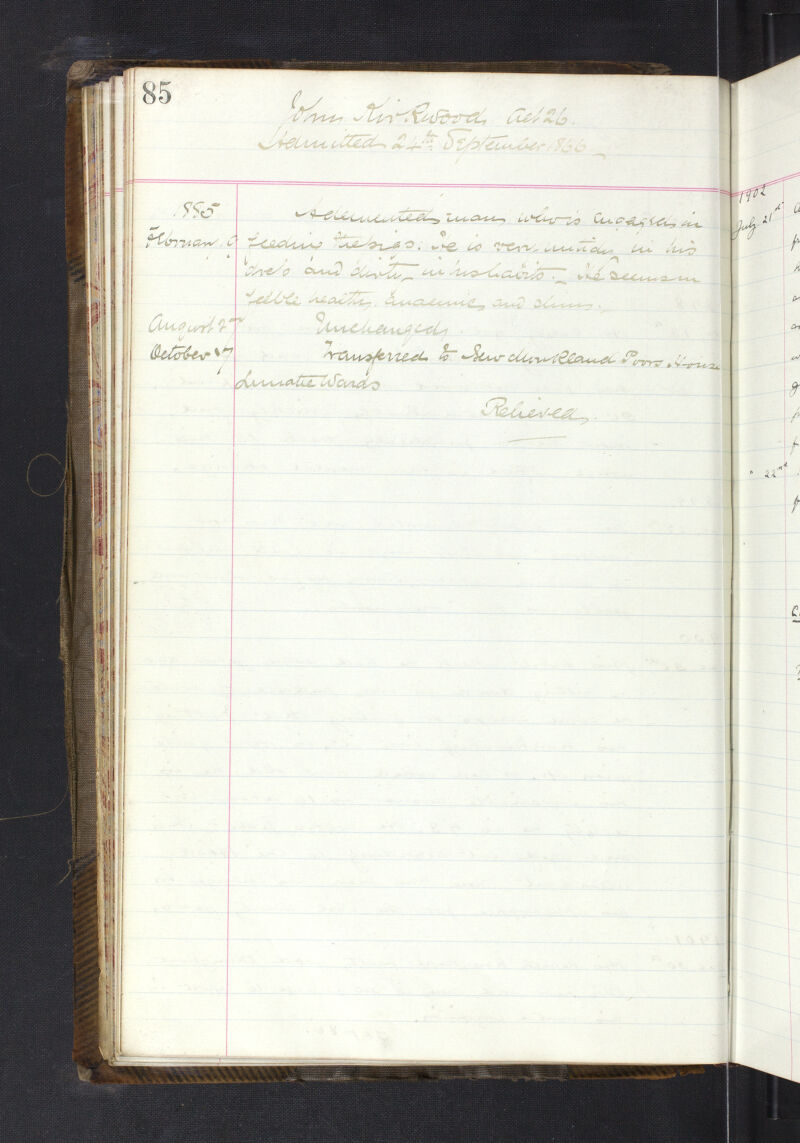 85
John Kirkwood Aet 26.
Admitted 24th September 1866
1885 A demented man who is engaged in
February 9 feeding the pigs. He is very untidy in his
dress and dirty in his habits. He seems in
feeble health, anaemic and
August 2nd Unchanged.
October 17 Transferred to New Monkland Poors House
Lunatic Wards
Relieved.
1902
July 21st
" 22nd